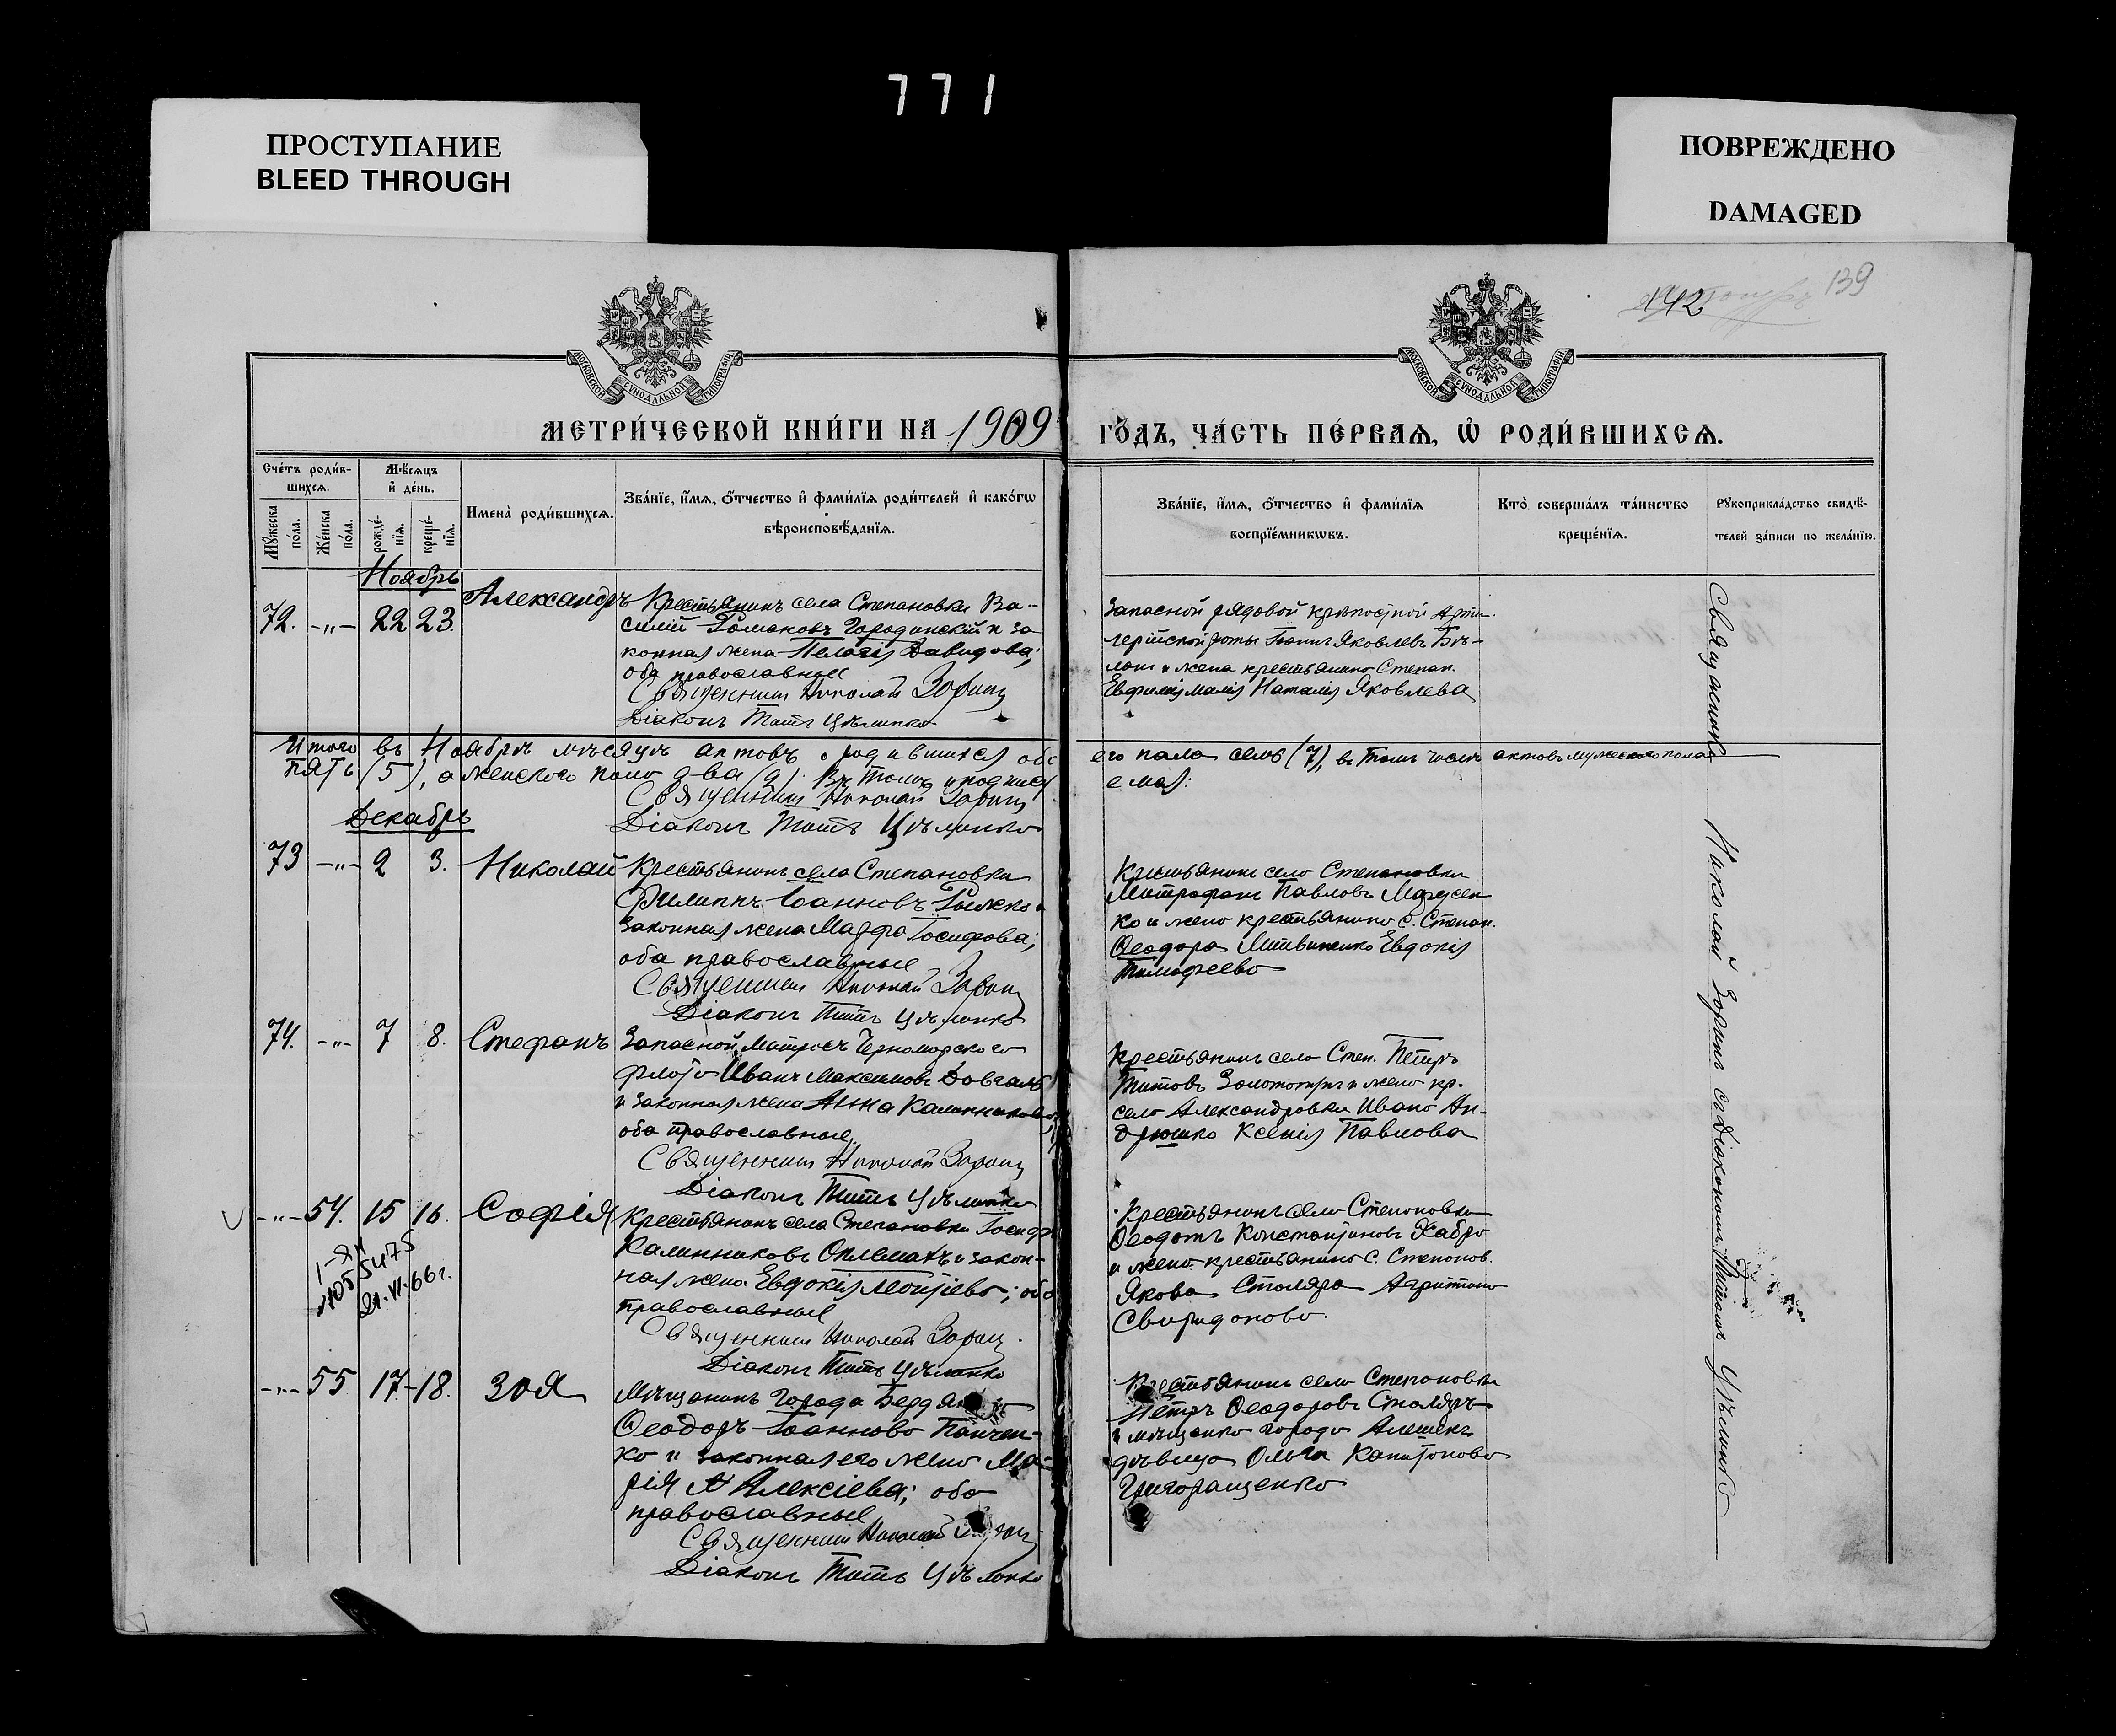 771
ПРОСТУПАНИЕ
BLEED THROUGH
ПОВРЕЖДЕНО
DAMAGED
142
139
МОСКОВСКОЙ СѴНОДАЛЬНОЙ ТИПОГРАФІИ
МОСКОВСКОЙ СѴНОДАЛЬНОЙ ТИПОГРАФІИ
МЕТРИ́ЧЕСКОЙ КНИ́ГИ НА 1909
ГО́ДЪ, ЧА́СТЬ ПЕ́РВАѦ, Ѡ҆ РОДИ́ВШИХСѦ.
Сче́тъ роди́вшихсѧ.
Мѣ́сѧцъ и҆ де́нь.
Мꙋ́жеска по́ла.
Же́нска по́ла.
рожде́нїѧ.
креще́нїѧ.
Имена̀ роди́вшихсѧ.
Зва́нїе, и҆́мѧ, ѻ҆́тчество и҆ фами́лїѧ роди́телей и҆ како́гѡ
вѣроисповѣ́данїѧ.
Зва́нїе, и҆́мѧ, ѻ҆́тчество и҆ фами́лїѧ
воспрїе́мникѡвъ.
Кто̀ соверша́лъ та́инство
креще́нїѧ.
Рꙋкоприкла́дство свидѣ́-
телей за́писи по жела́нїю.
Ноябрь
72. -"- 22 23. Александръ
Крестьянинъ села Степановки Ва-
силій Романовъ Городинскій и за
конная жена Пелагія Давидова;
оба православные
Священникъ Николай Зоринъ
Діаконъ Титъ Цѣлинко
Запасной рядовой крѣпостной Арти-
лерійской роты Іоаннъ Яковлевъ
и жена крестьянина Степан.
Наталія Яковлева
Итого въ Ноябрѣ мѣсяцѣ актовъ о родившихся обо
его пола семь (7), въ томъ числѣ актовъ мужескаго пола
пять (5), а женскаго пола два (2). Въ томъ и подписа
емся:
Священникъ Николай Зоринъ
Діаконъ Титъ Цѣлинко
Декабрь
73 -"- 2 3. Николай
Крестьянинъ села Степановки
Филиппъ Іоанновъ
законная жена Марфа Іосифова;
оба православные
Священникъ Николай Зоринъ
Діаконъ Титъ Цѣлинко
Крестьянинъ села Степановки
Митрофанъ Павловъ
ко и жена крестьянина с. Степан.
Ѳеодора Литвиненко Евдокія
Тимофеева
74. -"- 7 8. Стефанъ
Запасной Матросъ Черноморскаго
флота Иванъ Максимовъ Довгаль
и законная жена Анна Калинникова;
оба православные.
Священникъ Николай Зоринъ
Діаконъ Титъ Цѣлинко
Крестьянинъ села Степ. Петръ
Титовъ и жена кр.
села Александровки Ивана Ан-
дрюшко Ксенія Павлова
-"- 54. 15 16. Софія
1-ЯИ
21.VI.66г.
Крестьянинъ села Степановки Іосифъ
Калинниковъ и закон-
ная жена Евдокія; оба
православные
Священникъ Николай Зоринъ.
Діаконъ Титъ Цѣлинко
Крестьянинъ села Степановки
Ѳеодотъ Константиновъ Хабро
и жена крестьянина с. Степанов.
Якова Столяра
Свиридонова.
-"- 55 17-18. Зоя
Мѣщанинъ города
Ѳеодоръ Іоанновъ Панчен-
ко и законная его жена Ма-
рія Алексіева; оба
православные
Священникъ Николай
Діаконъ Титъ Цѣлинко
Крестьянинъ села Степановки
Петръ Ѳеодоровъ Столяръ
и мѣщанка города Алешекъ
дѣвица Ольга Капитонова
Григоращенко
Священникъ Николай Зоринъ съ діакономъ Титомъ Цѣлинко